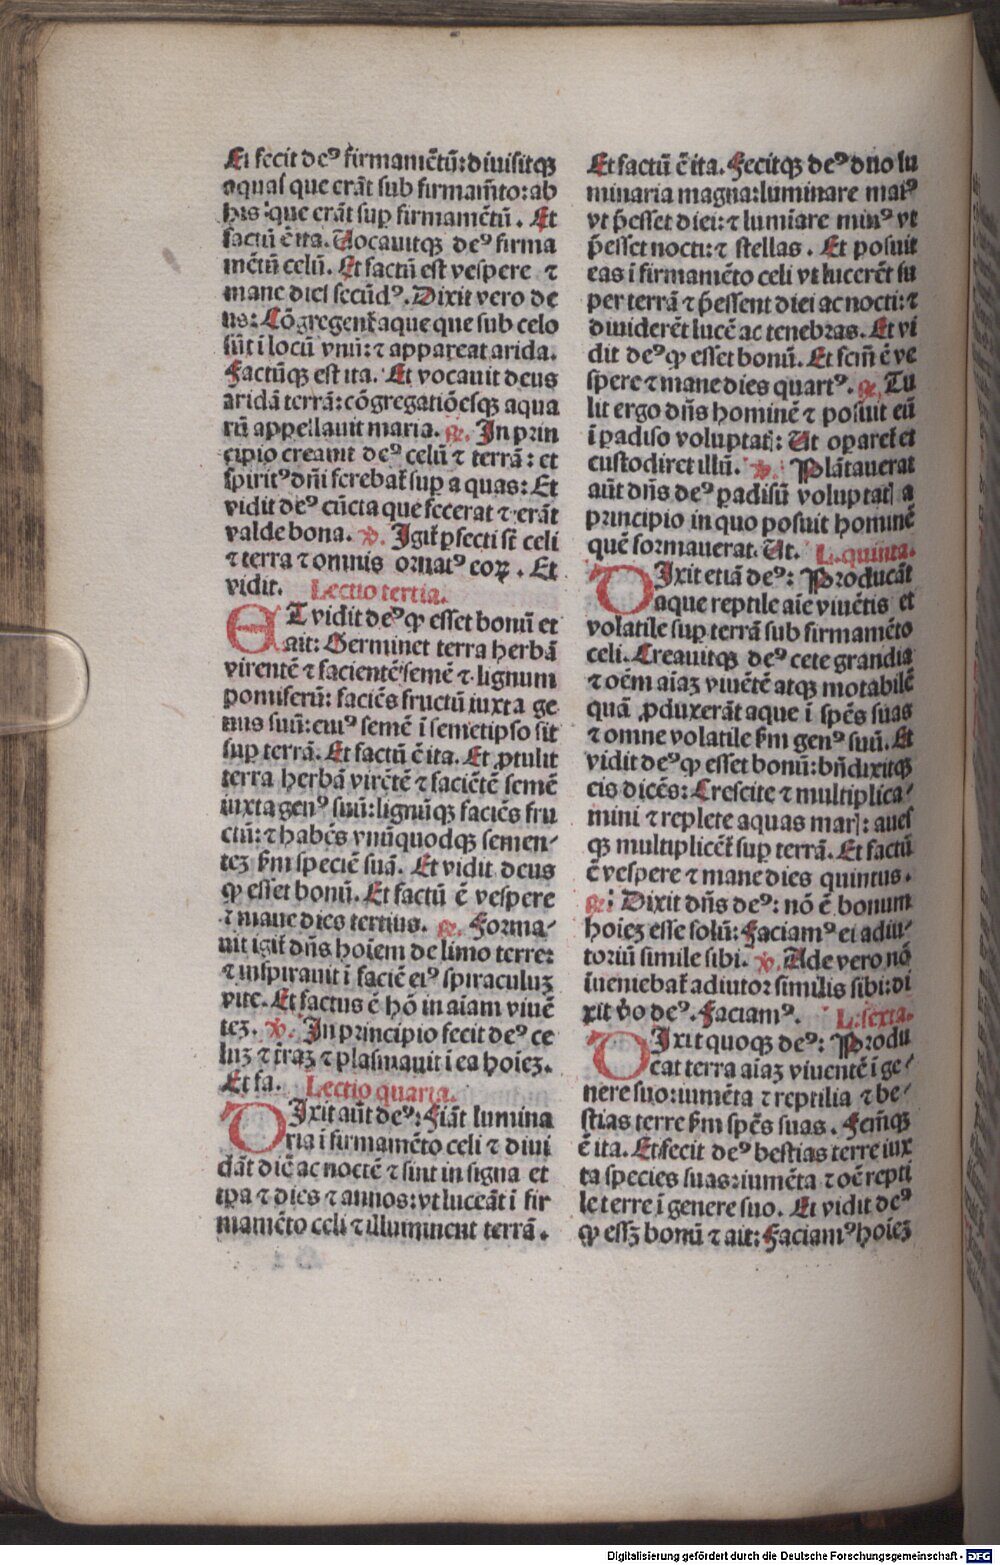 Et fecit deꝰ firmamētū: diuisitqꝫ
aquas que erāt sub firmam̄to: ab
his que erāt suꝑ firmamētū. Et
factū ē ita. Uocauitqꝫ deꝰ firma
mētū celū. Et factū est vespere ⁊
mane dies secūdꝰ. Dixit vero de
us: Cōgregent᷑ aque que sub celo
sūt ī locū vnū: ⁊ appareat arida.
Factūqꝫ est ita. Et vocauit deus
aridā terrā: cōgregatiōesqꝫ aqua
rū appellauit maria. ℟. In prin
cipio creauit deꝰ celū ⁊ terrā: et
spiritꝰ dn̄i ferebat᷑ suꝑ aquas: Et
vidit deꝰ cūcta que fecerat ⁊ erāt
valde bona. ℣. Igit᷑ ꝑfecti st̄ celi
⁊ terra ⁊ omnis ornatꝰ eoꝝ. Et
vidit. Lectio tertia.
ET vidit deꝰ ꝙ esset bonū et
ait: Germinet terra herbā
virentē ⁊ facientē semē ⁊ lignum
pomiferū: faciēs fructū iuxta ge
nus suū: cuiꝰ semē ī semetipso sit
suꝑ terrā. Et factū ē ita. Et ꝓtulit
terra herbā virētē ⁊ faciētē semē
iuxta genꝰ suū: lignūqꝫ faciēs fru
ctū: ⁊ habēs vnūquodqꝫ semen⸗
teꝫ ẜm speciē suā. Et vidit deus
ꝙ esset bonū. Et factū ē vespere
⁊ mane dies tertius. ℟. Forma⸗
uit igit᷑ dn̄s hoīem de limo terre:
⁊ inspirauit ī faciē eiꝰ spiraculuꝫ
vite. Et factus ē hō in aīam viuē
teꝫ. ℣. In principio fecit deꝰ ce
luꝫ ⁊ t̄raꝫ ⁊ plasmauit ī ea hoīeꝫ.
Et fa. Lectio quarta.
DIxit aūt deꝰ: Fiāt lumina
ria ī firmamēto celi ⁊ diui
dāt diē ac noctē ⁊ sint in signa et
tꝑa ⁊ dies ⁊ annos: vt luceāt ī fir
mamēto celi ⁊ illuminent terrā.
Et factū ē ita. Fecitqꝫ deꝰ duo lu
minaria magna: luminare maiꝰ
vt p̄esset diei: ⁊ lumīare minꝰ vt
p̄esset nocti: ⁊ stellas. Et posuit
eas ī firmamēto celi vt lucerēt su
per terrā ⁊ p̄essent diei ac nocti: ⁊
diuiderēt lucē ac tenebras. Et vi
dit deꝰ ꝙ esset bonū. Et fcm̄ ē ve
spere ⁊ mane dies quartꝰ. ℟. Tu
lit ergo dn̄s hominē ⁊ posuit eū
ī padiso voluptatꝭ: Ut oꝑaret᷑ et
custodiret illū. ℣. Plātauerat
aūt dn̄s deꝰ ꝑadisū voluptatꝭ a
principio in quo posuit hominē
quē formauerat. Ut. L. quinta.
DIxit etiā deꝰ: Producāt
aque reptile aīe viuētis et
volatile suꝑ terrā sub firmamēto
celi. Creauitqꝫ deꝰ cete grandia
⁊ oēm aīaꝫ viuētē atqꝫ motabilē
quā ꝓduxerāt aque ī spēs suas
⁊ omne volatile ẜm genꝰ suū. Et
vidit deꝰ ꝙ esset bonū: bn̄dixitqꝫ
eis dicēs: Crescite ⁊ multiplica⸗
mini ⁊ replete aquas marꝭ: aues
qꝫ multiplicēt᷑ suꝑ terrā. Et factū
ē vespere ⁊ mane dies quintus.
℟. Dixit dn̄s deꝰ: nō ē bonum
hoīeꝫ esse solū: Faciamꝰ ei adiu⸗
toriū simile sibi. ℣. Ade vero nō
īueniebat᷑ adiutor similis sibi: di
xit v̄o deꝰ. Faciamꝰ. L. sexta.
DIxit quoqꝫ deꝰ: Produ
cat terra aīaꝫ viuentē ī ge⸗
nere suo: iumēta ⁊ reptilia ⁊ be⸗
stias terre ẜm spēs suas. Fcm̄qꝫ
ē ita. Et fecit deꝰ bestias terre iux
ta species suas: iumēta ⁊ oē repti
le terre ī genere suo. Et vidit deꝰ
ꝙ essꝫ bonū ⁊ ait: Faciamꝰ hoīeꝫ
Digitalisierung gefördert durch die Deutsche Forschungsgemeinschaft - DFG